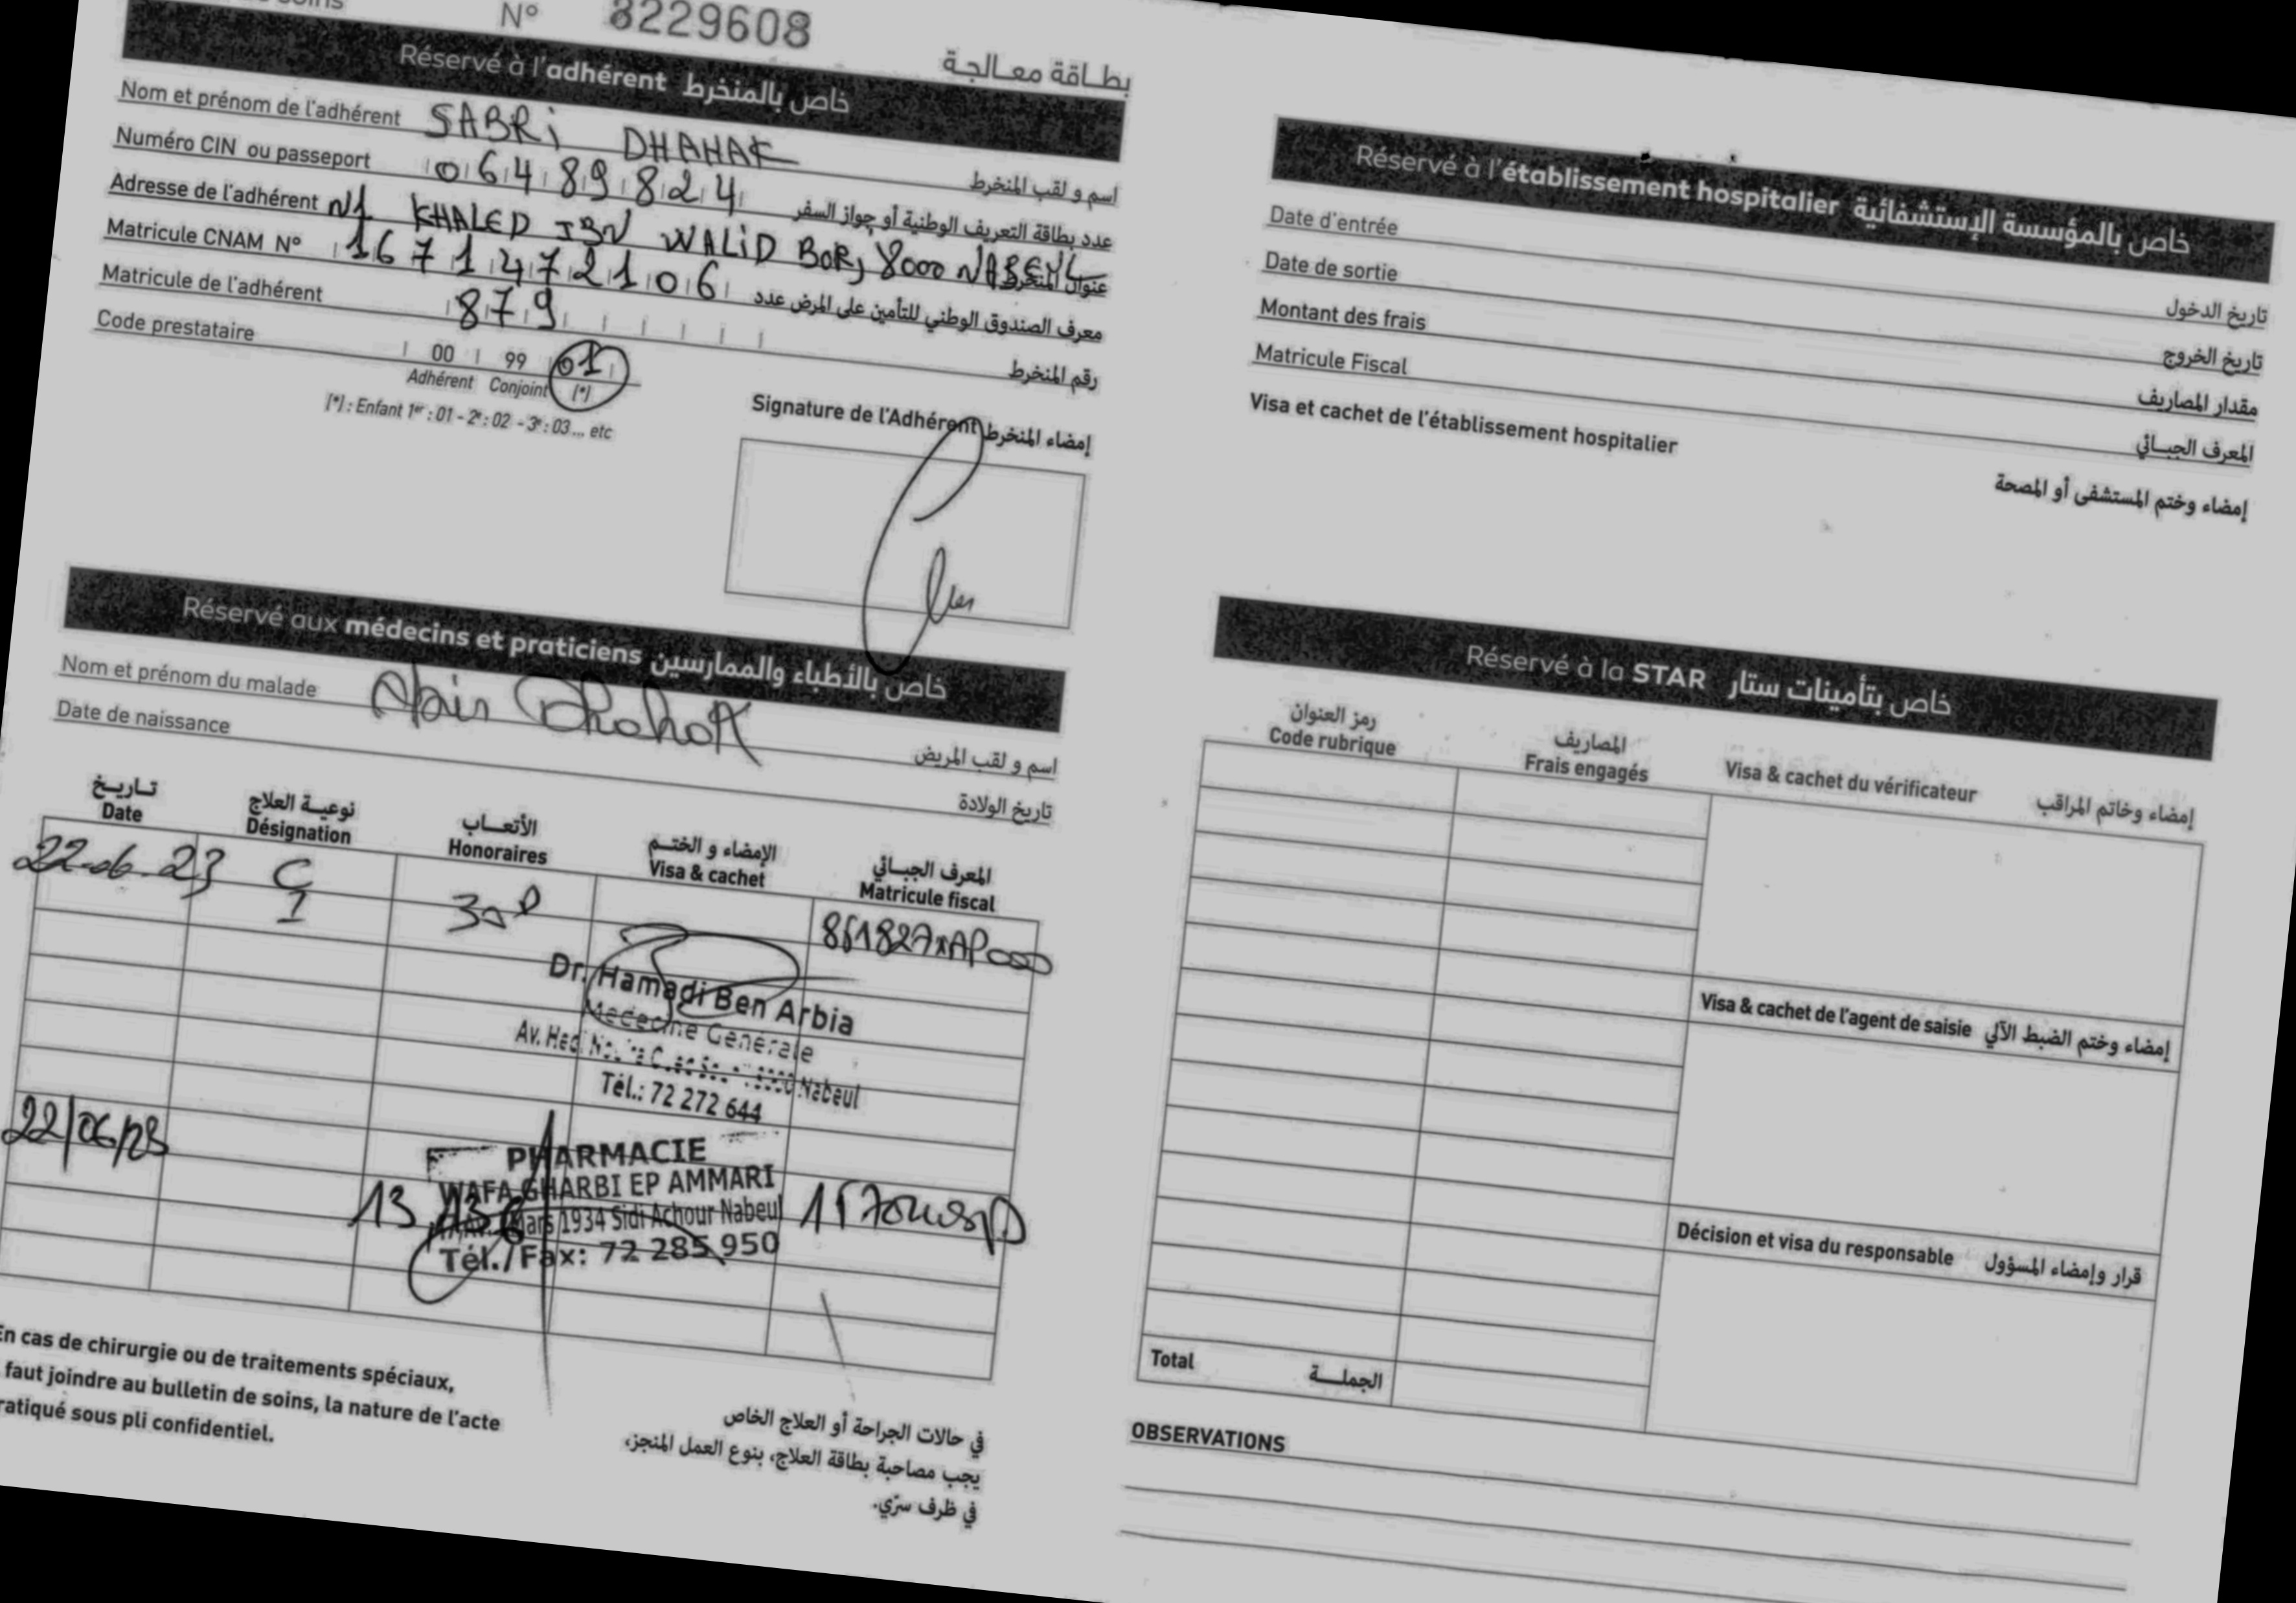 soins
N° 8229608
بطـاقة معـالجـة
Réservé à l'adhérent خاص بالمنخرط
Nom et prénom de l'adhérent SABRi DHAHAK اسم و لقب المنخرط
Numéro CIN ou passeport 06489824 عدد بطاقة التعريف الوطنية أو جواز السفر
Adresse de l'adhérent N1 KHALED IBN WALID BORJ 8000 NABEUL عنوان المنخرط
Matricule CNAM N° 1671472106 معرف الصندوق الوطني للتأمين على المرض عدد
Matricule de l'adhérent 879 رقم المنخرط
Code prestataire 00 99 01
Adhérent Conjoint (*)
(*) : Enfant 1er : 01 - 2e : 02 - 3e : 03 ... etc
Signature de l'Adhérent إمضاء المنخرط
Réservé aux médecins et praticiens خاص بالأطباء والممارسين
Nom et prénom du malade اسم و لقب المريض
Date de naissance تاريخ الولادة
تـاريـخ نوعيـة العلاج الأتعـاب الإمضاء و الختـم المعرف الجبـائي
Date Désignation Honoraires Visa & cachet Matricule fiscal
22-06-23 C1 30D
Dr. Hamadi Ben Arbia
Médecine Générale
Av. Hedi Nouira Nabeul
Tél.: 72 272 644
22/06/23
PHARMACIE
WAFA GHARBI EP AMMARI
Mars 1934 Sidi Achour Nabeul
Tél./Fax: 72 285 950
En cas de chirurgie ou de traitements spéciaux,
faut joindre au bulletin de soins, la nature de l'acte
pratiqué sous pli confidentiel.
في حالات الجراحة أو العلاج الخاص
يجب مصاحبة بطاقة العلاج، بنوع العمل المنجز،
في ظرف سرّي.
Réservé à l'établissement hospitalier خاص بالمؤسسة الإستشفائية
Date d'entrée تاريخ الدخول
Date de sortie تاريخ الخروج
Montant des frais مقدار المصاريف
Matricule Fiscal المعرف الجبـائي
Visa et cachet de l'établissement hospitalier إمضاء وختم المستشفى أو المصحة
Réservé à la STAR خاص بتأمينات ستار
رمز العنوان المصاريف
Code rubrique Frais engagés Visa & cachet du vérificateur إمضاء وخاتم المراقب
Visa & cachet de l'agent de saisie إمضاء وختم الضبط الآلي
Décision et visa du responsable قرار وإمضاء المسؤول
Total الجملـــة
OBSERVATIONS